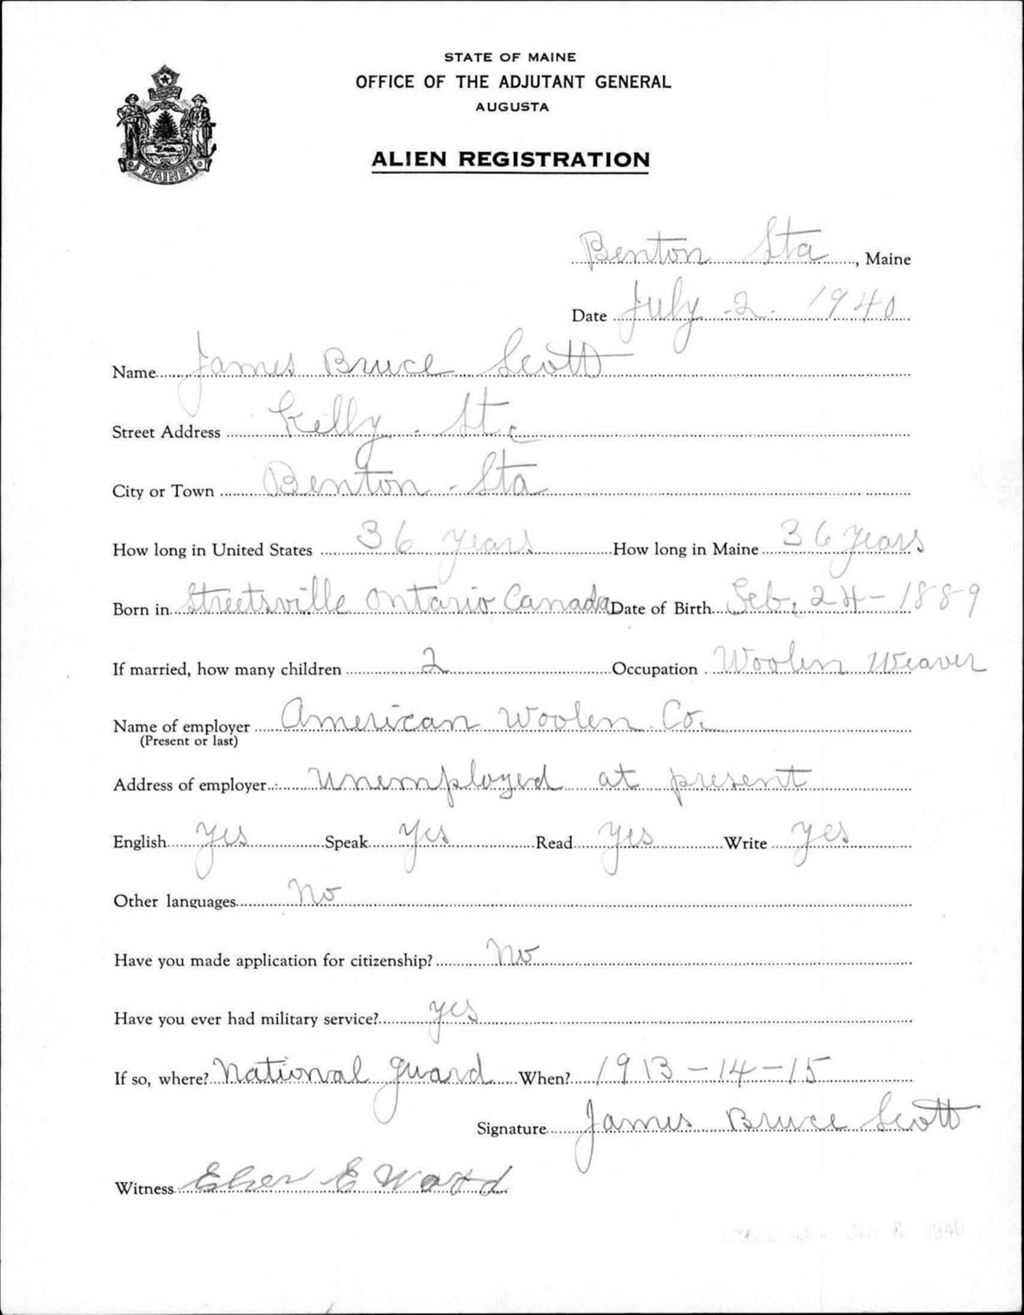 STATE OF MAINE
OFFICE OF THE ADJUTANT GENERAL
AUGUSTA
ALIEN REGISTRATION
MAINE
Benton Sta, Maine
Date July 2 1940
Name James Bruce Scott
Street Address Kelly. St.
City or Town Benton - Sta
How long in United States 36 years How long in Maine 36 years
Born in Streetsville Ontario Canada Date of Birth Feb, 24 - 1889
If married, how many children 2 Occupation Woolen Weaver
Name of employer American Woolen Co.
(Present or last)
Address of employer Unemployed at present
English yes Speak yes Read yes Write yes
Other languages No
Have you made application for citizenship? No
Have you ever had military service? yes
If so, where? National guard When? 1913-14-15
Signature James Bruce Scott
Witness E
1940